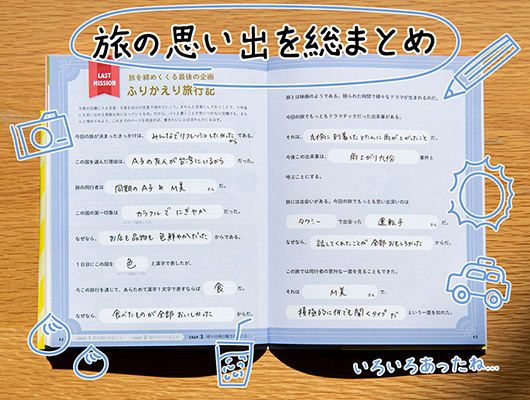 旅の思い出を総まとめ
LAST
MISSION
旅を締めくくる最後の企画
ふりかえり旅行記
今回の旅が決まったきっかけは、みんなでリフレッシュしたかったから である。
この国を選んだ理由は、A子の友人が台湾にいるから だった。
旅の同行者は 同期のA子とM美 さん だ。
この国の第一印象は カラフルでにぎやか だった。
なぜなら、お店も品物も色鮮やかだった からである。
1日目にこの国を 色 と漢字で表したが、
今この旅行を通じて、あらためて漢字1文字で表すならば 食 だ。
なぜなら、食べたものが全部おいしかった からだ。
62
旅とは映画のようである。限られた時間で様々なドラマが生まれるのだ。
今回の旅でもっともドラマチックだった出来事がある。
それは、九份に到着したとたんに雨が上がったこと だ。
今後この出来事は、雨上がり九份 事件と
呼ぶことにする。
旅には出会いがある。今回の旅でもっとも思い出深いのは
タクシー で出会った 運転手 さんだ。
なぜなら、話してくれたことが全部おもしろかった からだ。
この旅では同行者の意外な一面を見ることもできた。
それは M美 さん で、
積極的に何でも聞くタイプだ という一面を知れた。
63
いろいろあったね…